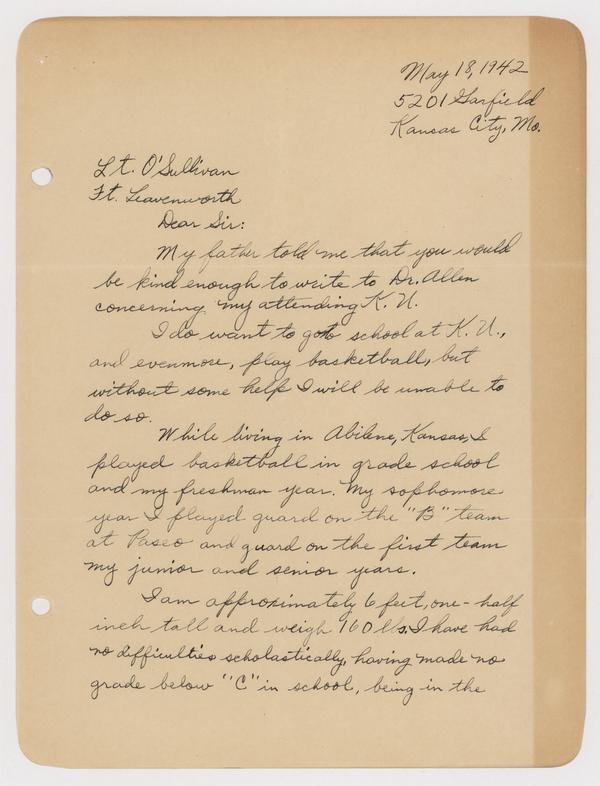 May 18, 1942
5201 Garfield
Kansas City, Mo.
Lt. O'Sullivan
Ft. Leavenworth
Dear Sir:
My father told me that you would
be kind enough to write to Dr. Allen
concerning my attending K. U.
I do want to go to school at K. U.,
and evenmore, play basketball, but
without some help I will be unable to
do so.
While living in Abilene, Kansas, I
played basketball in grade school
and my freshman year. My sophomore
year I played guard on the "B" team
at Paseo and guard on the first team
my junior and senior years.
I am approximately 6 feet, one-half
inch tall and weigh 160 lbs. I have had
no difficulties scholastically, having made no
grade below "C" in school, being in the